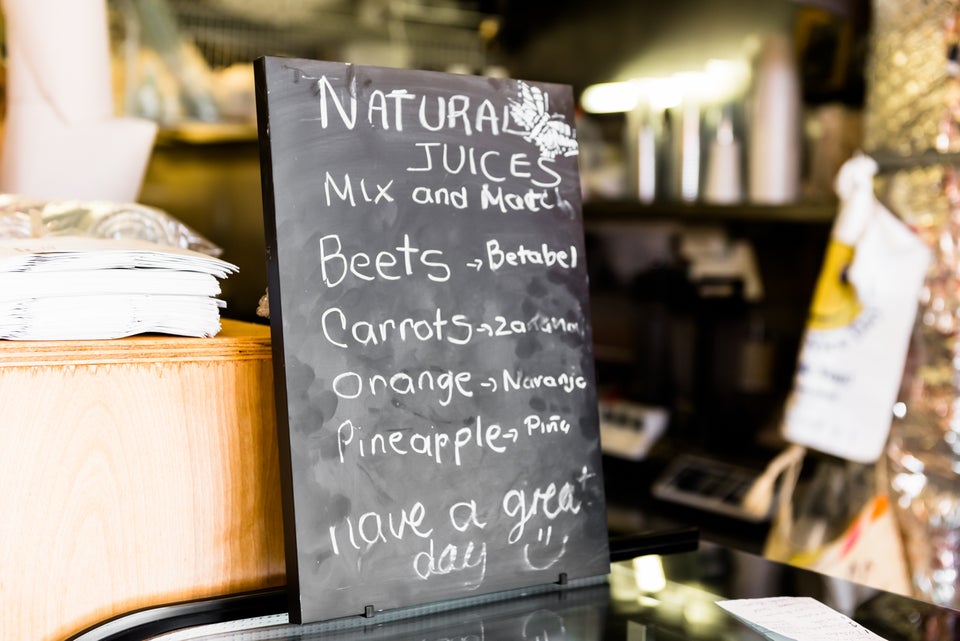 NATURAL
JUICES
Mix and Match
Beets → Betabel
Carrots →
Orange → Naranja
Pineapple → Piña
Have a great
day